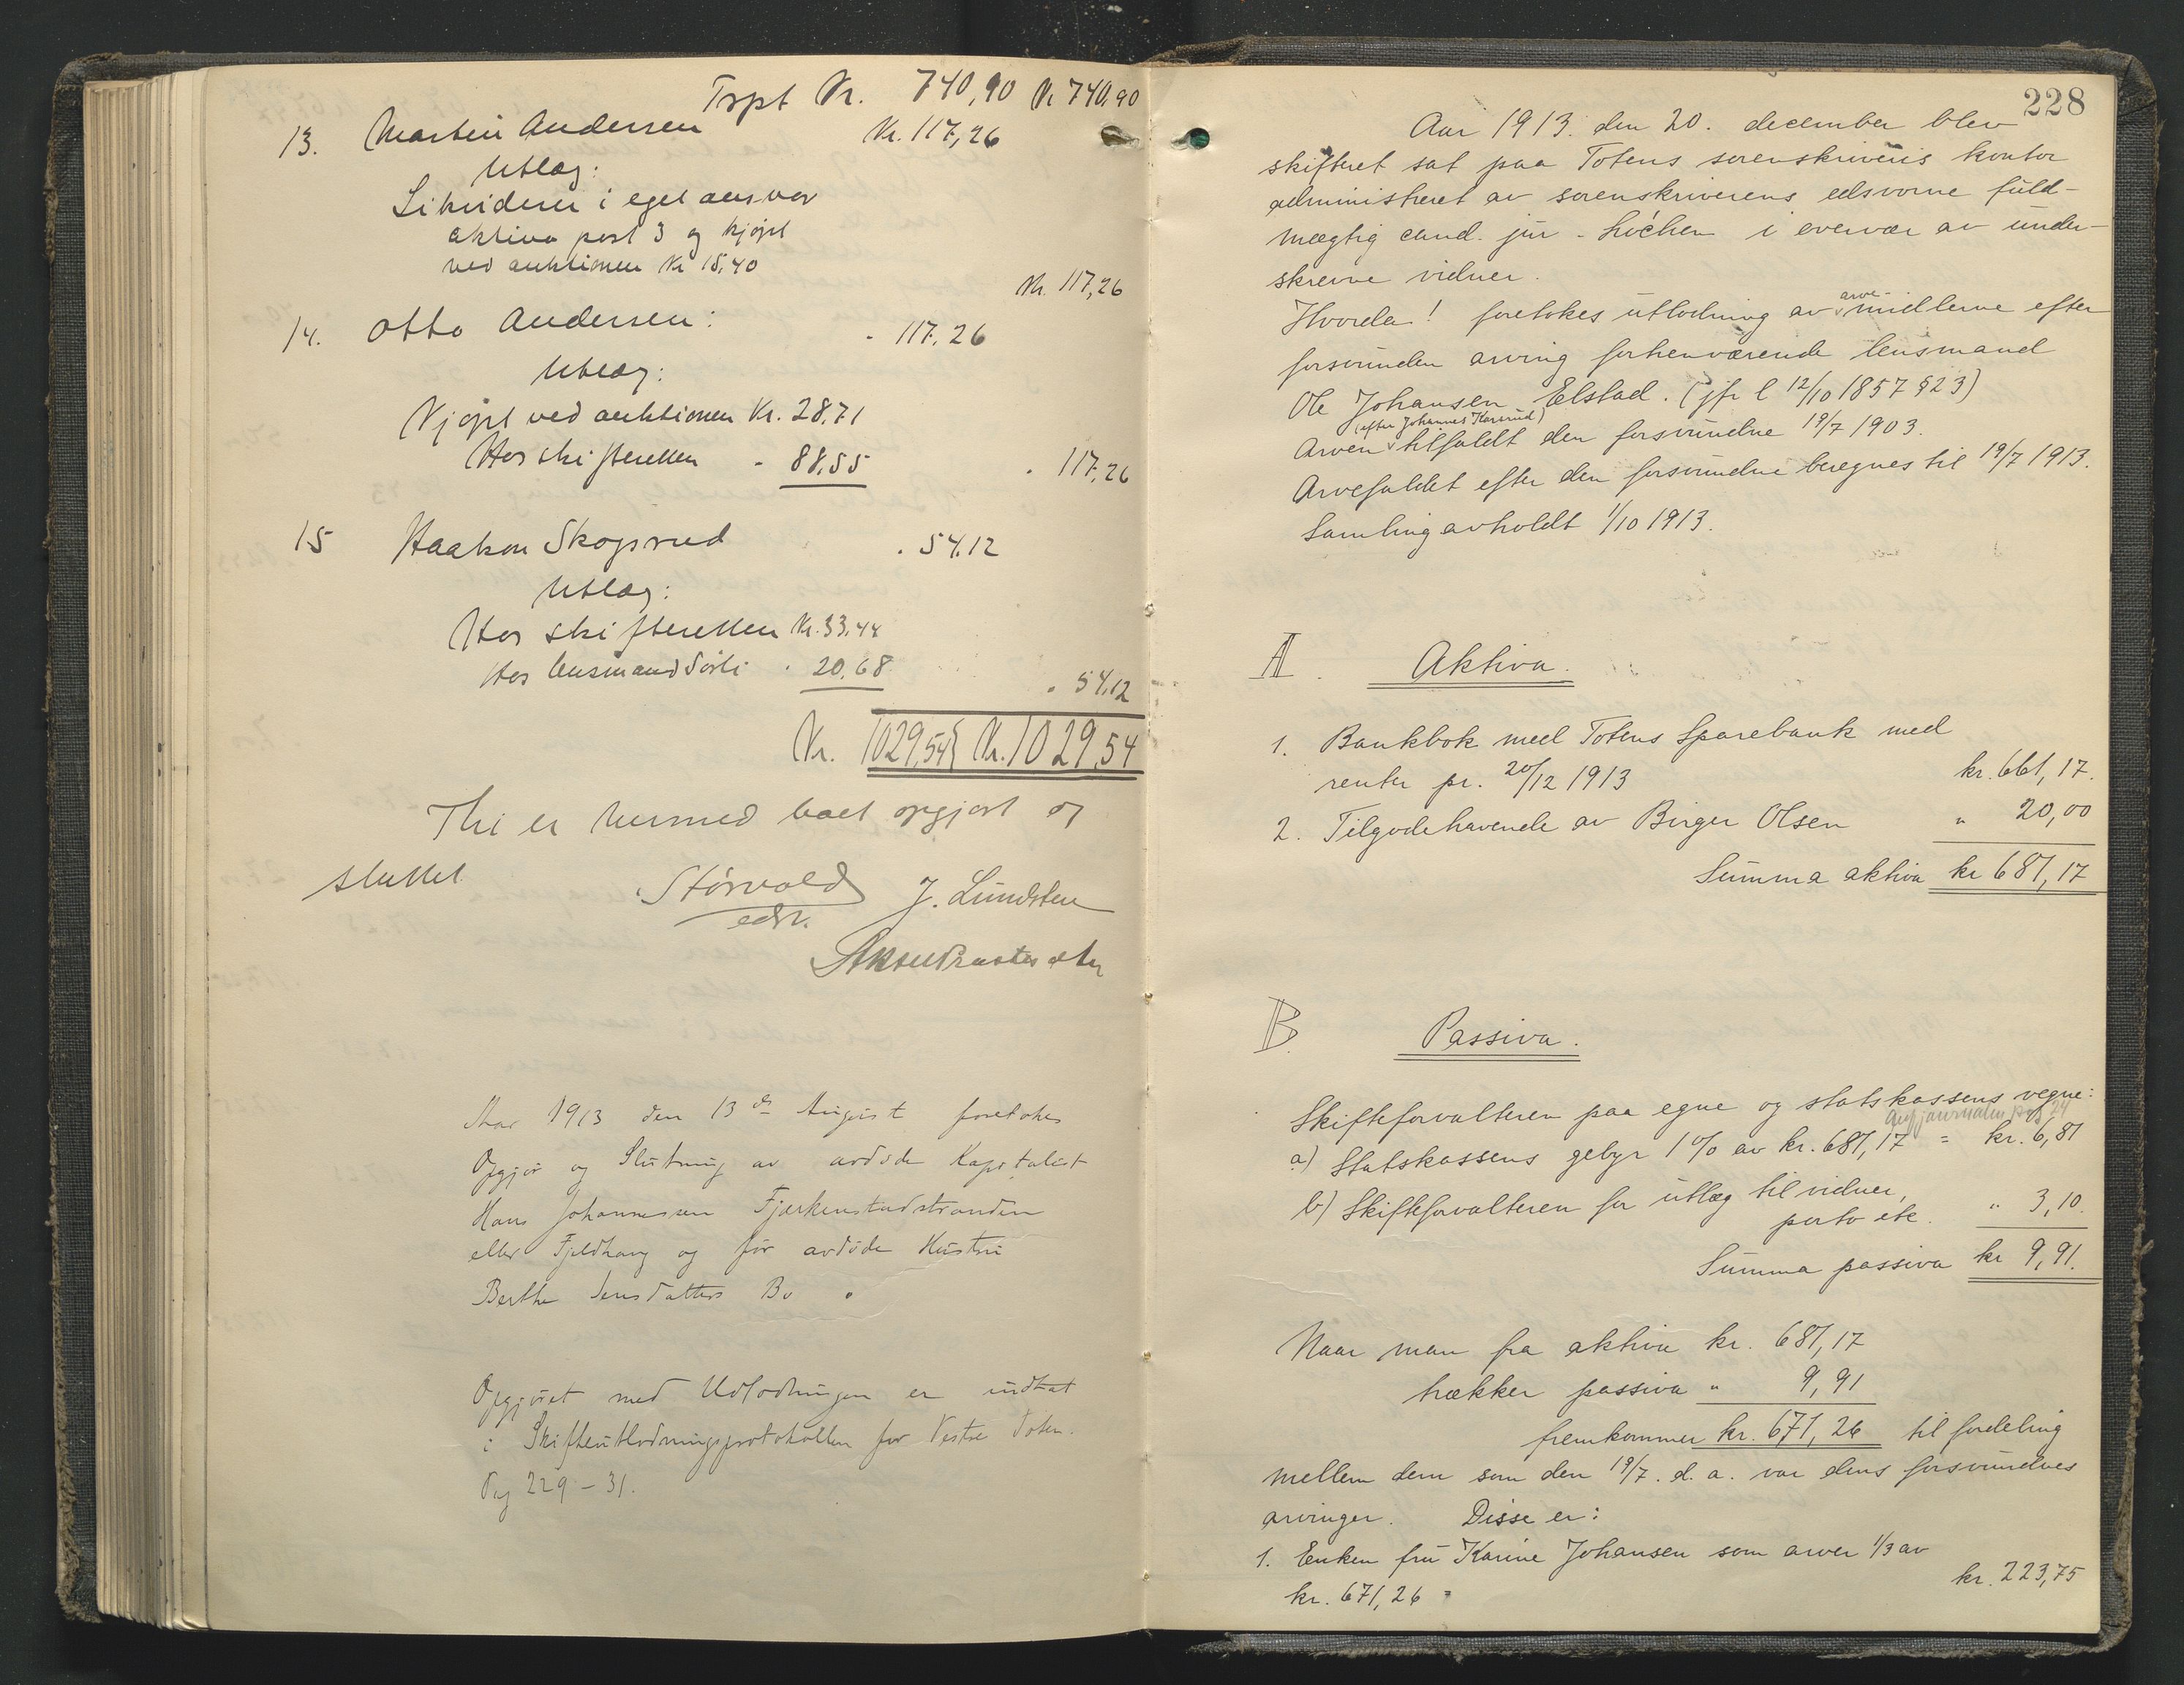 Trpt Kr. 740,90 Kr 740,90
13. Martin Andersen Kr. 117,26
Utlæg:
Likviderer i eget ansvar
aktiva post 3 og kjøpt
ved auktionen Kr 15,40
Kr. 117,26
14. Otto Andersen: " 117,26
Utlæg:
Kjøpt ved auktionen Kr. 28,71
Hos skifteretten " 88,55
" 117,26
15 Haakon Skogsrud " 54,12
Utlæg:
Hos skifteretten Kr. 33,44
Hos lensmand Sørli " 20,68
" 54,12
Kr. 1029,54 Kr. 1029,54
Thi er hermed boet opgjort og
sluttet
Størvold J. Lundsten
edsv.

Aar 1913 den 13de August foretokes
Opgjør og Slutning av avdøde Kapitalist
Hans Johannesen Fjerkenstadstranden
eller Fjeldhaug og før avdøde Hustru
Berthe Jensdatters Bo.
Opgjøret med Udlodningen er indtat
i Skifteutlodningsprotokollen for Vestre Toten.
Pag 229-31.

228
Aar 1913 den 20. december blev
skifteret sat paa Totens sorenskriveris kontor
administreret av sorenskriverens edsvorne fuld-
mægtig cand. jur. Lóchen i overvær av under-
skrevne vidner.
Hvorda! foretokes utlodning av arve-midlerne efter
forsvunden arving forhenværende lensmand
Ole Johansen Elstad. (jfr l 12/10 1857 § 23)
(efter Johannes Karsrud)
Arven tilfaldt den forsvundne 19/7 1903.
Arvefaldet efter den forsvundne beregnes til 19/7 1913.
Samling avholdt 1/10 1913.
A. Aktiva.
1. Bankbok med Totens Sparebank med
renter pr. 20/12 1913 kr. 661,17.
2. Tilgodehavende av Birger Olsen " 20,00
Summa aktiva kr 681,17
B. Passiva.
Skifteforvalteren paa egne og statskassens vegne:
a) Statskassens gebyr 1 % av kr. 681,17 = kr. 6,81
b) Skifteforvalteren for utlæg til vidner,
porto etc. " 3,10.
Summa passiva kr 9,91.
Naar man fra aktiva kr. 681,17
trækker passiva " 9,91
fremkommer kr. 671,26 til fordeling
mellem dem som den 19/7. d. a. var dens forsvundnes
arvinger. Disse er:
1. Enken fru Karine Johansen som arver 1/3 av
kr. 671,26 = kr. 223,75